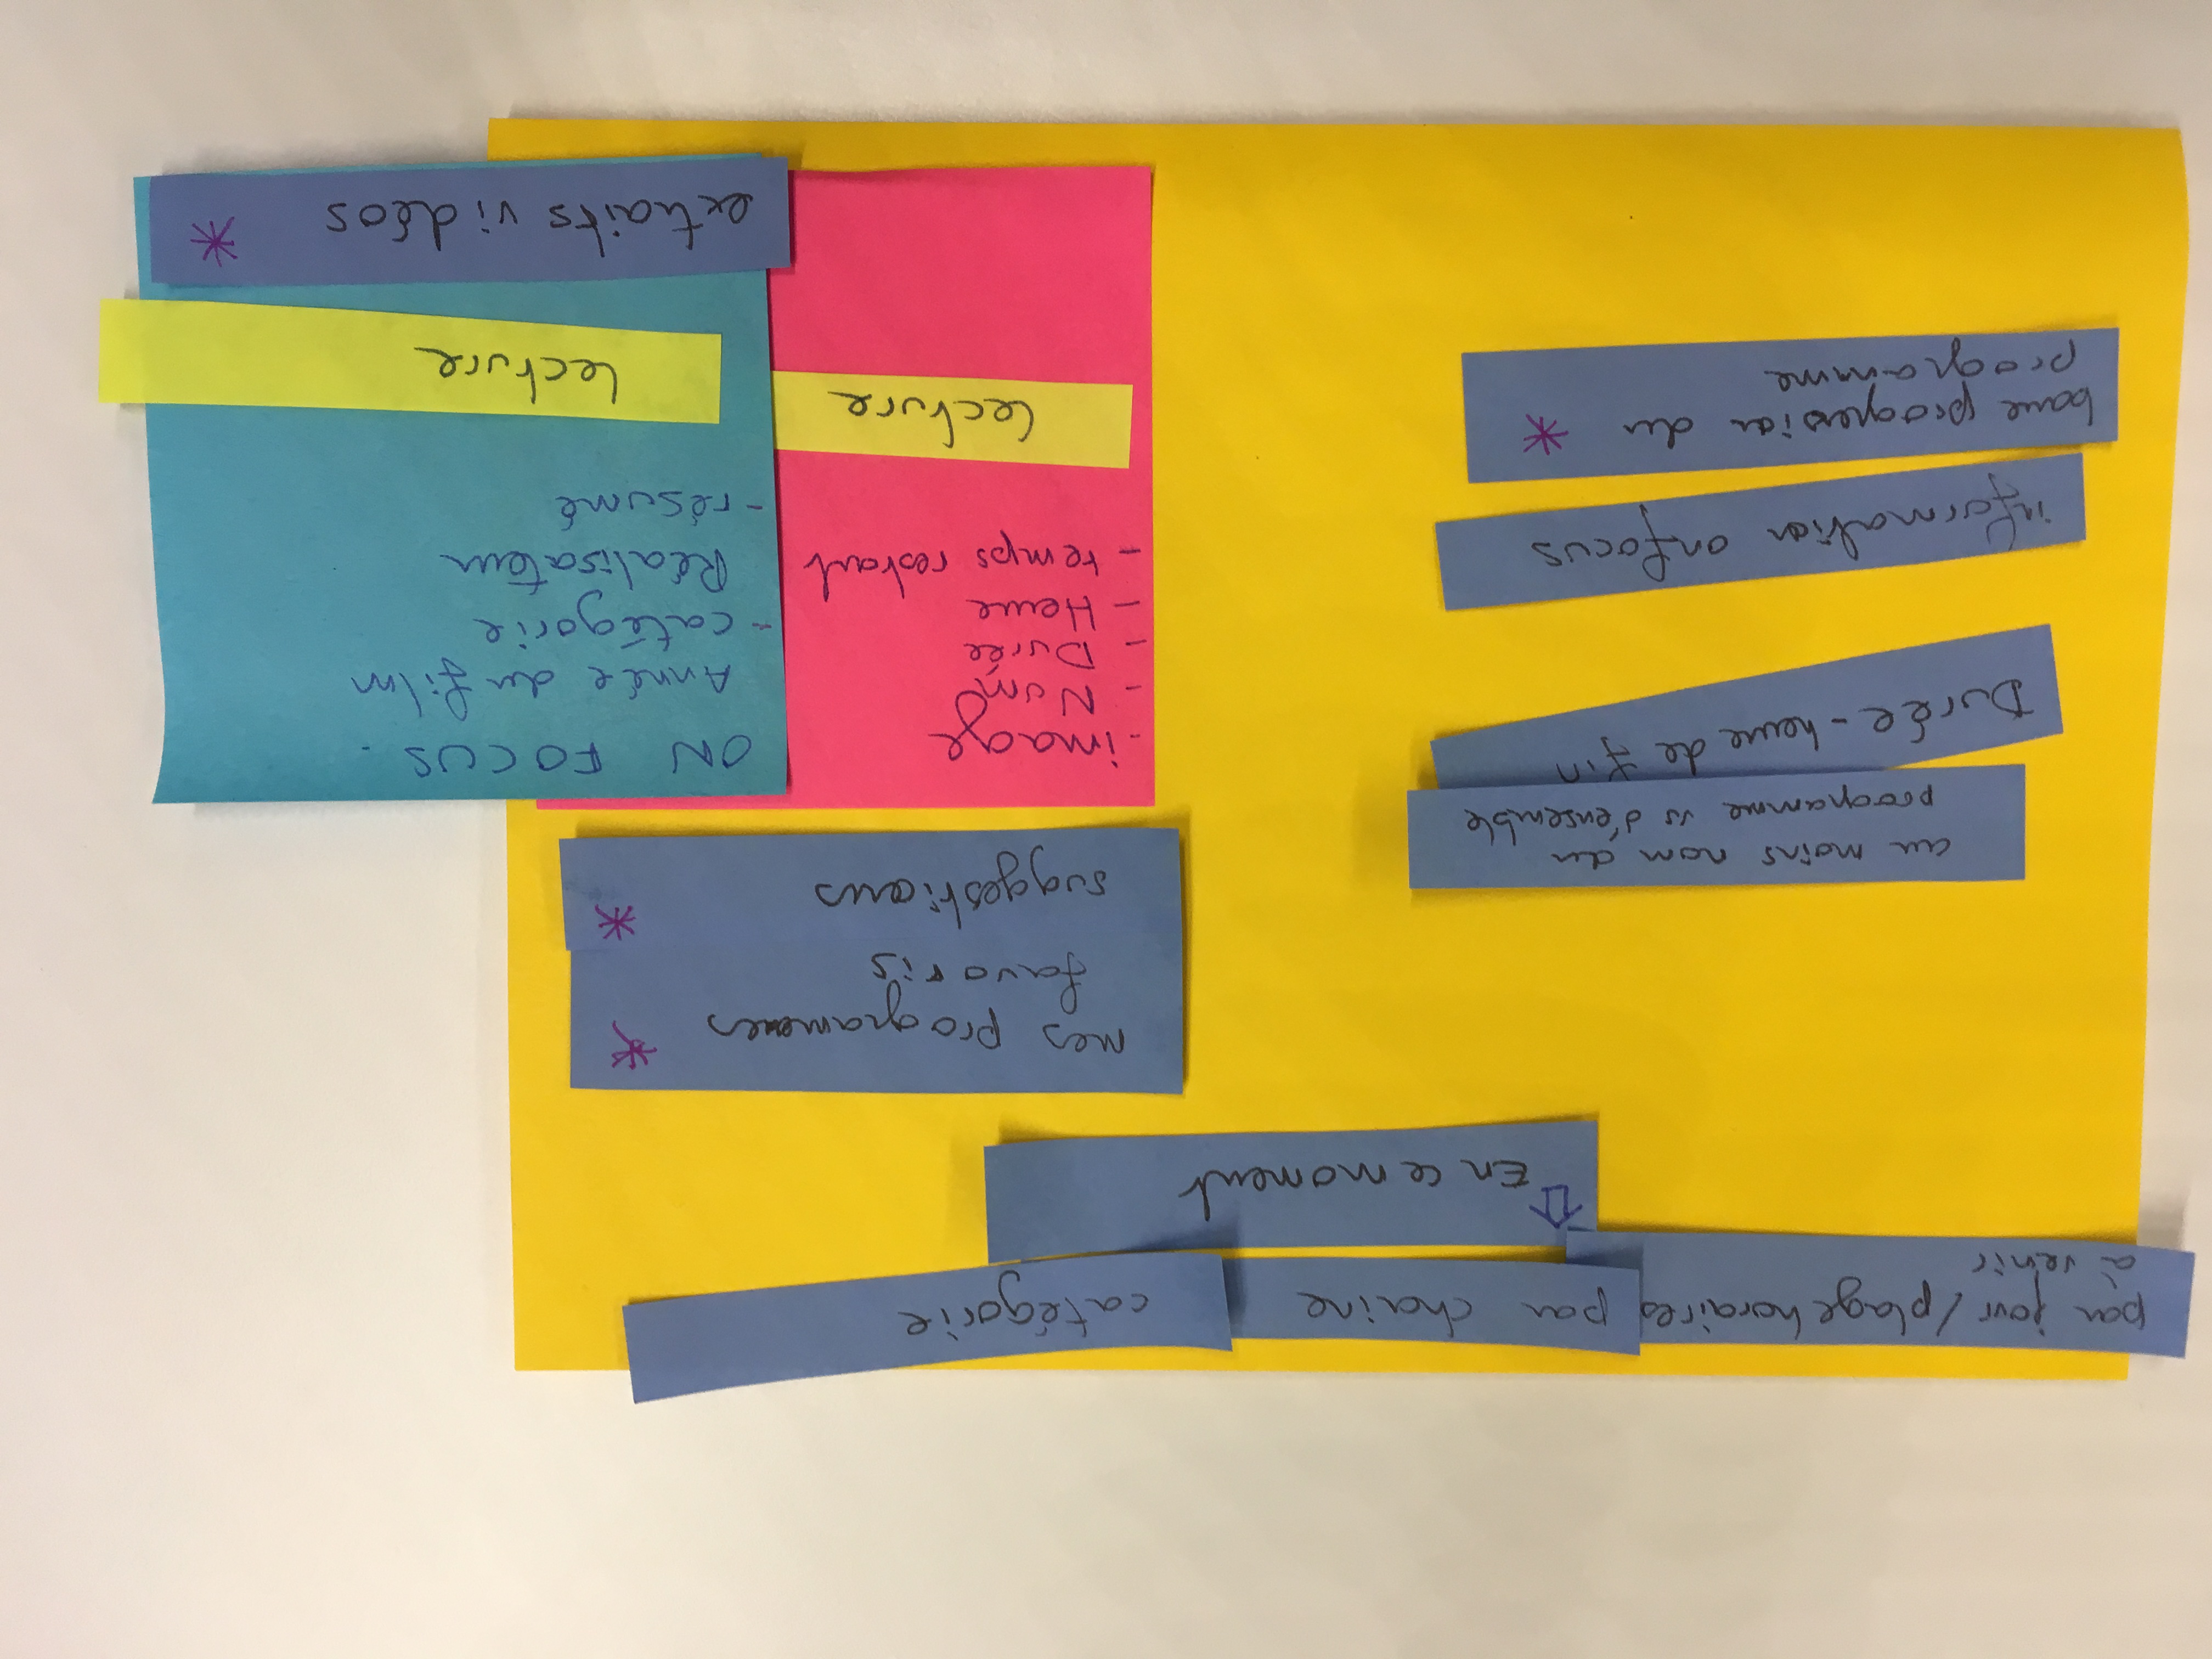 par jour / plage horaires
à venir
par chaine
catégorie
En ce moment
mes programmes
favoris
suggestions
au moins nom du
programme vs d'ensemble
Durée - heure de fin
information onfocus
barre progression du
programme
- image
- Nom
- Durée
- Heure
- temps restant
lecture
ON FOCUS.
Année du film
- catégorie
Réalisateur
- résumé
lecture
extraits vidéos